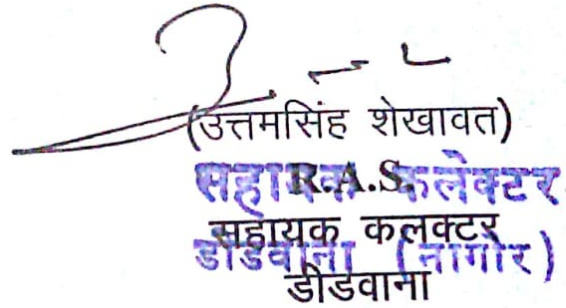 (उत्तमसिंह शेखावत)
R.A.S.
सहायक कलेक्टर
सहायक कलक्टर
डीडवाना (नागोर)
डीडवाना